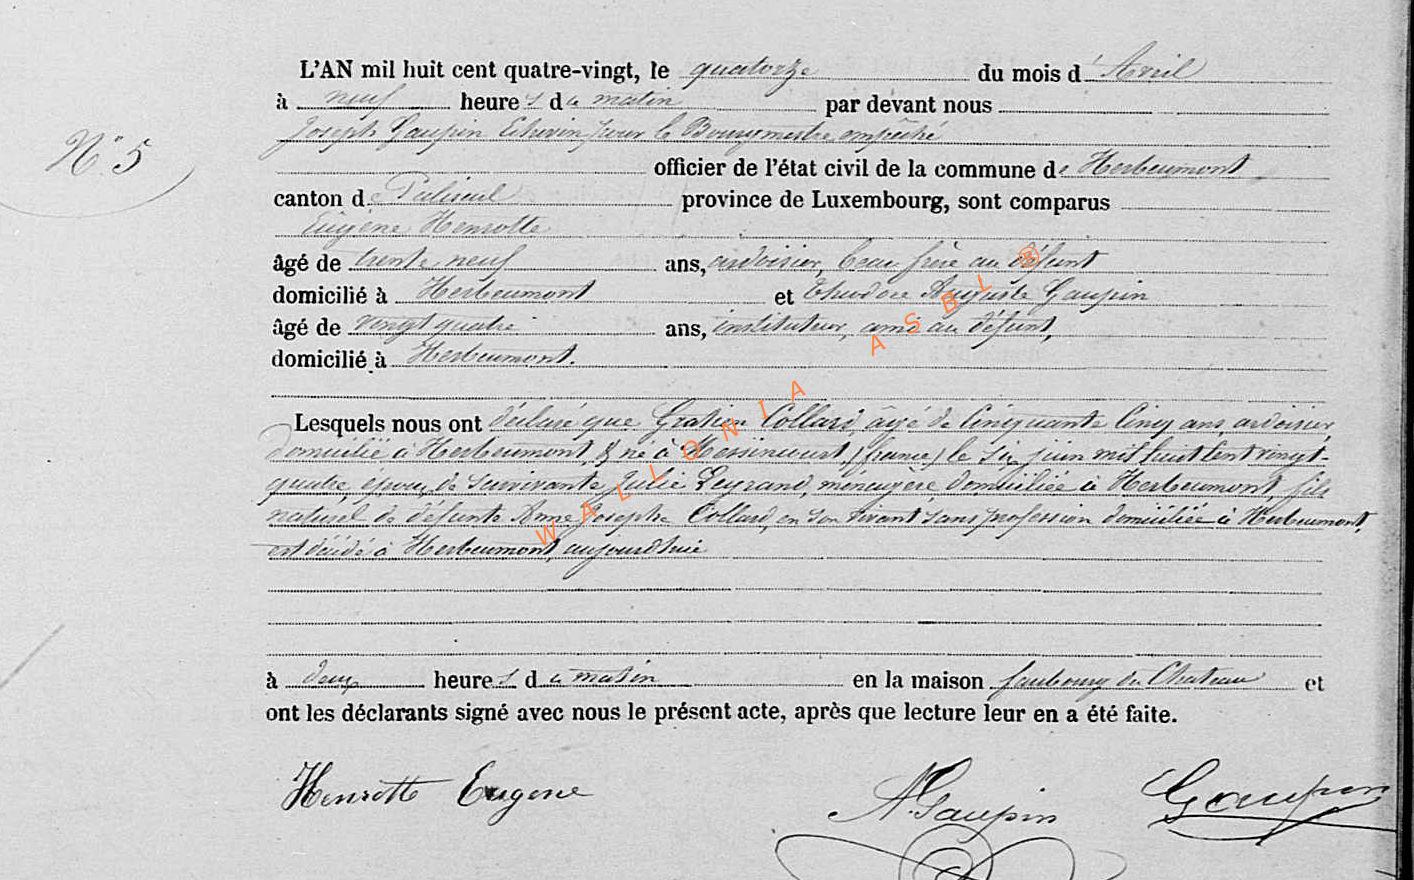 N° 5
L'AN mil huit cent quatre-vingt, le quatorze du mois d'Avril
à neuf heures du matin par devant nous
Joseph Gaupin Echevin pour le Bourgmestre empêché
officier de l'état civil de la commune de Herbeumont
canton de Paliseul province de Luxembourg, sont comparus
Eugène Henrotte
âgé de trente neuf ans, ardoisier, beau frère au défunt
domicilié à Herbeumont et Théodore Auguste Gaupin
âgé de vingt quatre ans, instituteur, ami au défunt,
domicilié à Herbeumont.
Lesquels nous ont déclaré que Gratien Collard, âgé de Cinquante Cinq ans, ardoisier,
domicilié à Herbeumont, & né à Messincourt, (france) le six juin mil huit cent vingt-
quatre, époux de survivante Julie Peyrand, ménagère, domiciliée à Herbeumont, fils
naturel de défunte Anne Josephe Collard, en son vivant sans profession domiciliée à Herbeumont,
est décédé à Herbeumont, aujourdhui
à deux heures du matin en la maison faubourg du Chateau et
ont les déclarants signé avec nous le présent acte, après que lecture leur en a été faite.
Henrotte Eugene A. Gaupin Gaupin
WALLONIA ASBL ®